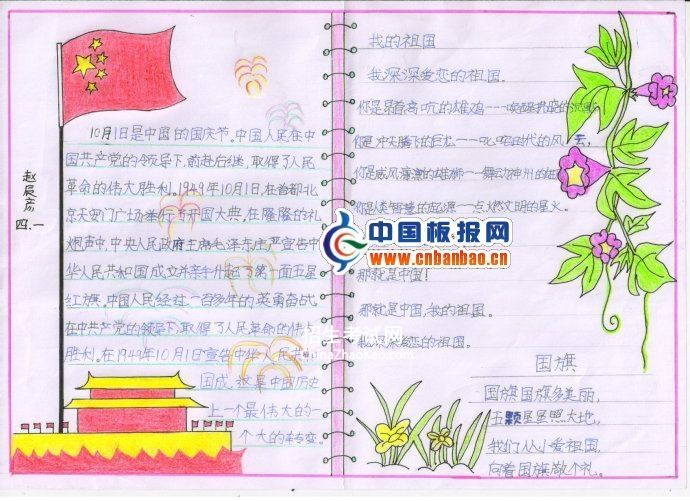 赵辰彦
四.一
10月1日是中国的国庆节。中国人民在中
国共产党的领导下,前赴后继,取得了人民
革命的伟大胜利。1949年10月1日,在首都北
京天安门广场举行了开国大典,在隆隆的礼
炮声中,中央人民政府主席毛泽东庄严宣告中
华人民共和国成立并亲手升起了第一面五星
红旗。中国人民经过一百多年的英勇奋战,
在中共产党的领导下,取得了人民革命的伟大
胜利。在1949年10月1日宣告中华人民共和
国成。这是中国历史
上一个最伟大的一
个大的转变。
我的祖国
我深深爱恋的祖国。
你是昂首高吭的雄鸡---唤醒拂晓的沉默
你是冲天腾飞的巨龙---叱咤时代的风云,
你是威风凛凛的雄狮---舞动神州的雄
你是人类智慧的起源---点燃文明的星火。
中国板报网
www.cnbanbao.cn
那就是中国!
那就是中国,我的祖国。
我深深爱恋的祖国。
招生考试网
国旗
国旗国旗多美丽,
五颗星星照大地,
我们从小爱祖国,
向着国旗敬个礼。